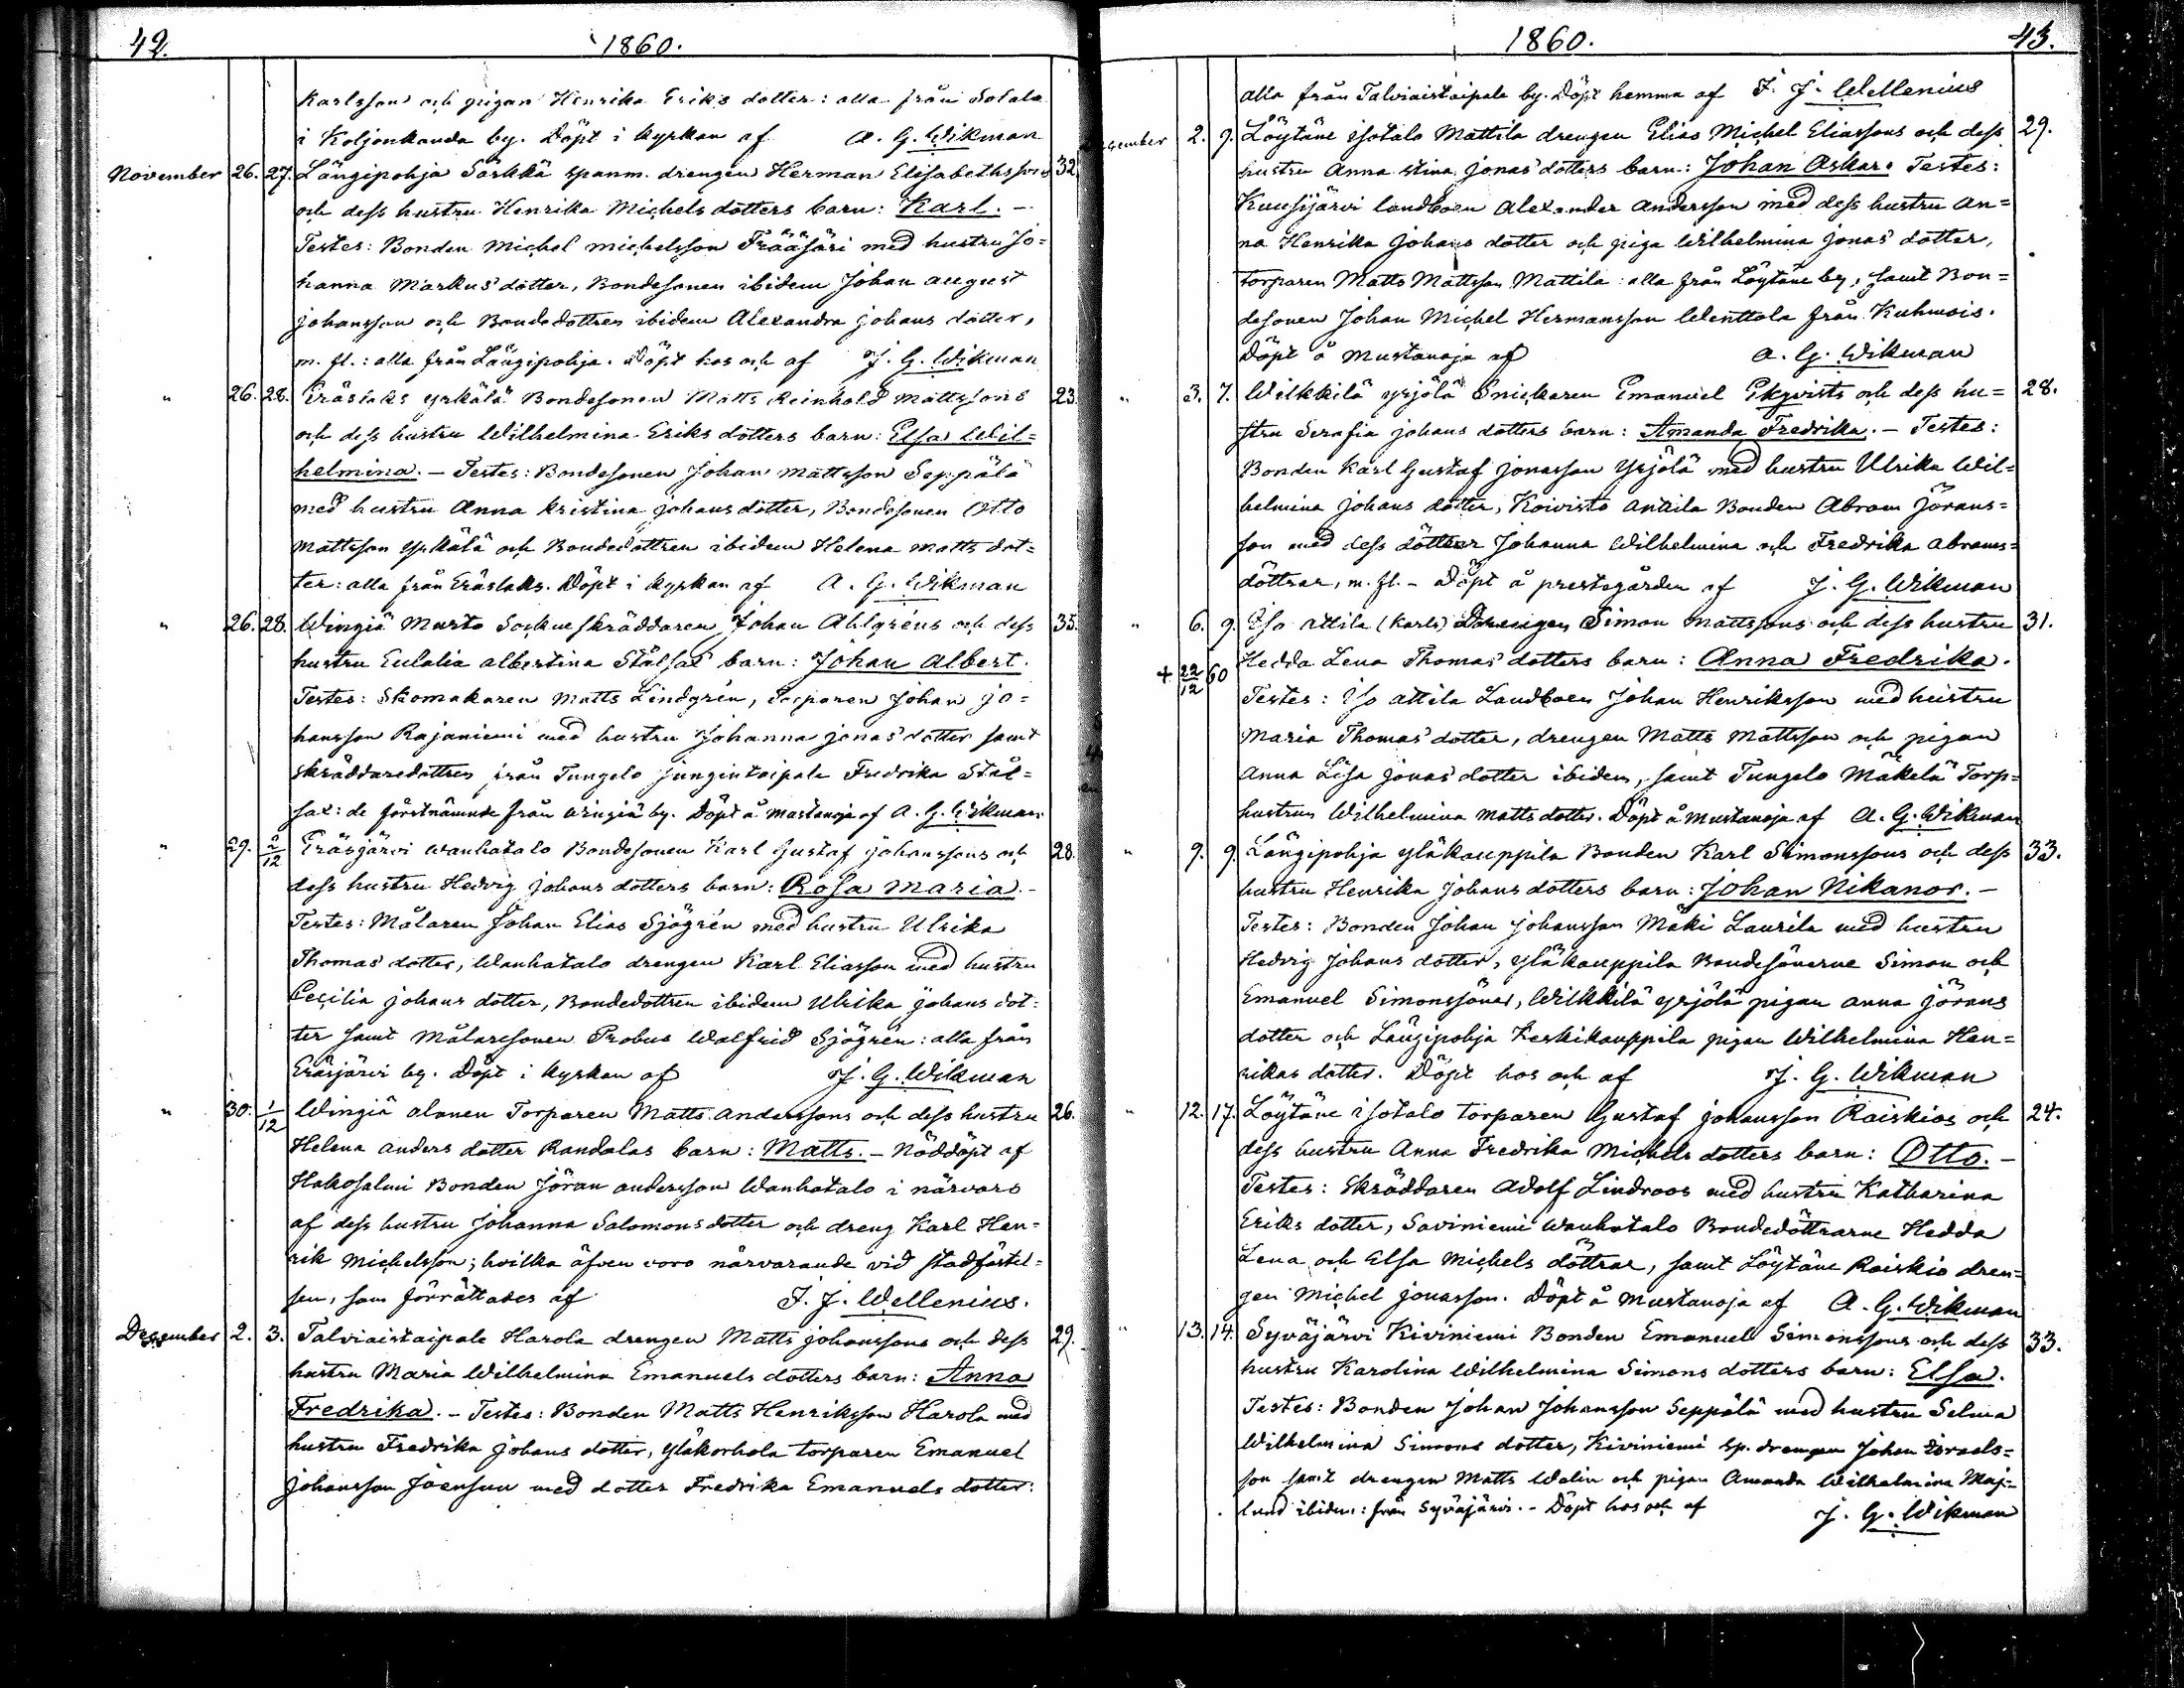 42. 1860.
Karlsson och pigan Henrika Eriks dotter: alla från Sotala
i Koljonkanda by. Döpt i kyrkan af A. G. Wikman
November 26. 27. Längipohja Särkkä spanm. drengen Herman Elisabethssons 32.
och dess hustru Henrika Michels dotters barn: Karl. -
Testes: Bonden Michel Michelsson Frääsäri med hustru Jo=
hanna Markus dotter, Bondesonen ibidem Johan August
Johansson och Bondedottren ibidem Alexandra Johans dotter,
m. fl.: alla från Längipohja. Döpt hos och af J. G. Wikman
" 26. 28. Eräslaks Yrkälä Bondesonen Matts Reinhold Mattssons 23.
och dess hustru Wilhelmina Eriks dotters barn: Elsa Wil=
helmina. - Testes: Bondesonen Johan Mattsson Seppälä
med hustru Anna Kristina Johans dotter, Bondesonen Otto
Mattsson Yrkälä och Bondedottren ibidem Helena Matts dot=
ter: alla från Eräslaks. Döpt i kyrkan af A. G. Wikman
" 26. 28. Wingiä Marto Sockneskräddaren Johan Ahlgréns och dess 35.
hustru Eulalia Albertina Stålsax barn: Johan Albert.
Testes: Skomakaren Matts Lindgrén, Torparen Johan Jo=
hansson Rajaniemi med hustru Johanna Jonas dotter samt
skräddaredottren från Tungelo Jungintaipale Fredrika Stål=
sax: de förstnämnde från Wingiä by. Döpt å Mustanoja af A. G. Wikman
" 29. 2/12 Eräsjärvi Wanhatalo Bondesonen Karl Gustaf Johanssons och 28.
dess hustru Hedvig Johans dotters barn: Rosa Maria. -
Testes: Målaren Johan Elias Sjögrén med hustru Ulrika
Thomas dotter, Wanhatalo drengen Karl Eliasson med hustru
Cecilia Johans dotter, Bondedottren ibidem Ulrika Johans dot=
ter samt Målaresonen Probus Walfrid Sjögrén: alla från
Eräsjärvi by. Döpt i kyrkan af J. G. Wikman
" 30. 1/12 Wingiä Alanen Torparen Matts Anderssons och dess hustru 26.
Helena Anders dotter Randalas barn: Matts. - Nöddöpt af
Hakosalmi Bonden Jöran Andersson Wanhatalo i närvaro
af dess hustru Johanna Salomons dotter och dreng Karl Hen=
rik Michelsson; hvilka äfven voro närvarande vid stadfästel=
sen, som förrättades af F. J. Wellenius.
December 2. 3. Talviaistaipale Harola drengen Matts Johanssons och dess 29.
hustru Maria Wilhelmina Emanuels dotters barn: Anna
Fredrika. - Testes: Bonden Matts Henriksson Harola med
hustru Fredrika Johans dotter, Yläkorhola torparen Emanuel
Johansson Joensuu med dotter Fredrika Emanuels dotter:
1860. 43.
alla från Talviaistaipale by. Döpt hemma af F. J. Wellenius
December 2. 9. Löytäne Isotalo Mattila drengen Elias Michel Eliassons och dess 29.
hustru Anna Stina Jonas dotters barn: Johan Oskar. Testes:
Kuusijärvi landboen Alexander Andersson med dess hustru An=
na Henrika Johans dotter och piga Wilhelmina Jonas dotter,
torparen Matts Mattsson Mattila: alla från Löytäne by, samt Bon=
desonen Johan Michel Hermansson Wenttola från Kuhmois.
Döpt å Mustanoja af A. G. Wikman
" 3. 7. Wilkkilä Yrjölä Snickaren Emanuel Ekqvists och dess hu= 28.
stru Serafia Johans dotters barn: Amanda Fredrika. - Testes:
Bonden Karl Gustaf Jonasson Yrjölä med hustru Ulrika Wil=
helmina Johans dotter, Koivisto Anttila Bonden Abram Jörans=
son med dess döttrar Johanna Wilhelmina och Fredrika Abrams=
döttrar, m. fl. - Döpt å prestgården af J. G. Wikman
" 6. 9. Iso Attila (Karls) Drengen Simon Mattssons och dess hustru 31.
+ 22/12 60 Hedda Lena Thomas dotters barn: Anna Fredrika.
Testes: Iso Attila Landboen Johan Henriksson med hustru
Maria Thomas dotter, drengen Matts Mattsson och pigan
Anna Lisa Jonas dotter ibidem, samt Tungelo Mäkelä Torp=
hustrun Wilhelmina Matts dotter. Döpt å Mustanoja af A. G. Wikman
" 9. 9. Längipohja Yläkauppila Bonden Karl Simonssons och dess 33.
hustru Henrika Johans dotters barn: Johan Nikanor. -
Testes: Bonden Johan Johansson Mäki Laurila med hustru
Hedvig Johans dotter, Yläkauppila Bondesönerne Simon och
Emanuel Simonssöner, Wilkkilä Yrjölä pigan Anna Jörans
dotter och Längipohja Keskikauppila pigan Wilhelmina Hen=
rikas dotter. Döpt hos och af J. G. Wikman
" 12. 17. Löytäne Isotalo torparen Gustaf Johansson Raiskios och 24.
dess hustru Anna Fredrika Michels dotters barn: Otto. -
Testes: Skräddaren Adolf Lindroos med hustru Katharina
Eriks dotter, Saviniemi Wanhatalo Bondedöttrarne Hedda
Lena och Elsa Michels döttrar, samt Löytäne Raiskio dren=
gen Michel Jonasson. Döpt å Mustanoja af A. G. Wikman
" 13. 14. Syväjärvi Kiviniemi Bonden Emanuel Simonssons och dess 33.
hustru Karolina Wilhelmina Simons dotters barn: Elsa.
Testes: Bonden Johan Johansson Seppälä med hustru Selma
Wilhelmina Simons dotter, Kiviniemi sp. drengen Johan Israels=
son samt drengen Matts Walin och pigan Amanda Wilhelmina Maj=
lund ibidem: från Syväjärvi. - Döpt hos och af J. G. Wikman